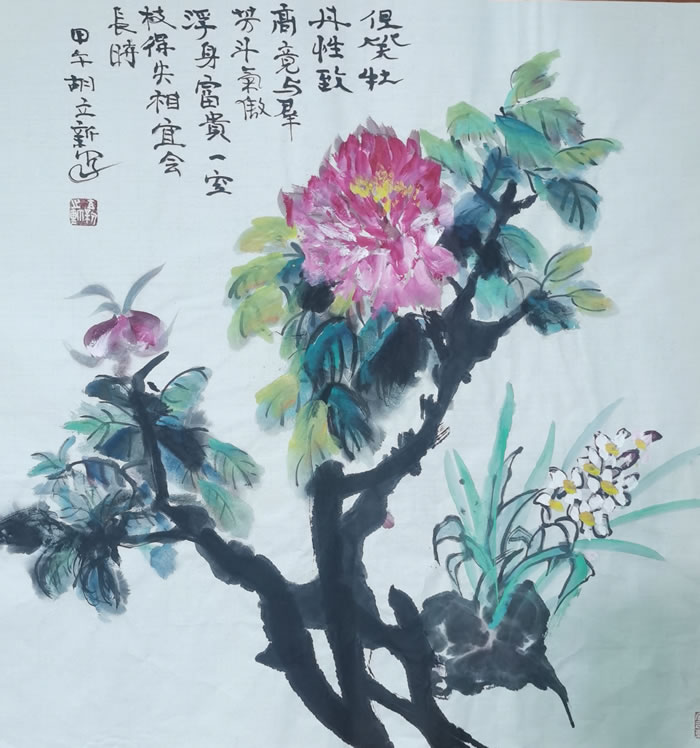 但笑牡
丹性致
高竟与群
芳斗氣傲
浮身富貴一空
枝得失相宜会
長時
甲午胡立新写